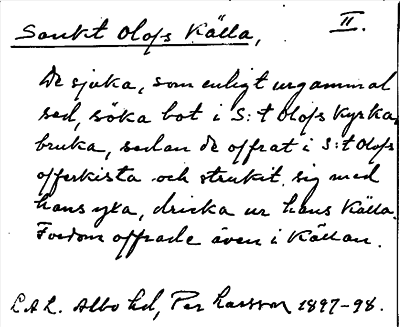 Sankt Olofs Källa, II.
De sjuka, som enligt urgammal
sed, söka bot i S:t Olofs Kyrka,
bruka, sedan de offrat i S:t Olofs
offerkista och strukit sig med
hans yxa, dricka ur hans Källa.
Fordom offrade även i Källan.
L.A.L. Albo hd, Per Larsson 1897-98.